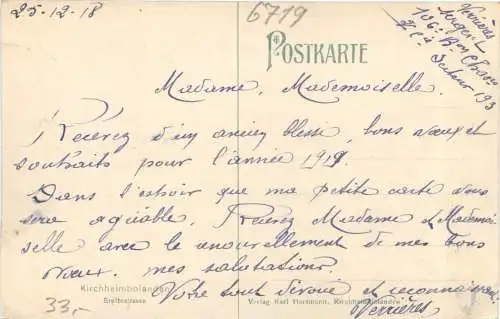 25-12-18
6719
Verrières
Sergent
106e Bon Chass
Secteur 193
POSTKARTE
Madame, Mademoiselle.
Recevez d'un ancien blessé, bons vœux et
souhaits pour l'année 1919.
Dans l'espoir que ma petite carte vous
sera agréable, Recevez Madame et Mademoi
selle avec le renouvellement de mes bons
vœux. mes salutations.
Kirchheimbolanden
Breitestrasse
Votre tout dévoué et reconnaissant
Verlag Karl Hartmann, Kirchheimbolanden
Verrières
33,-